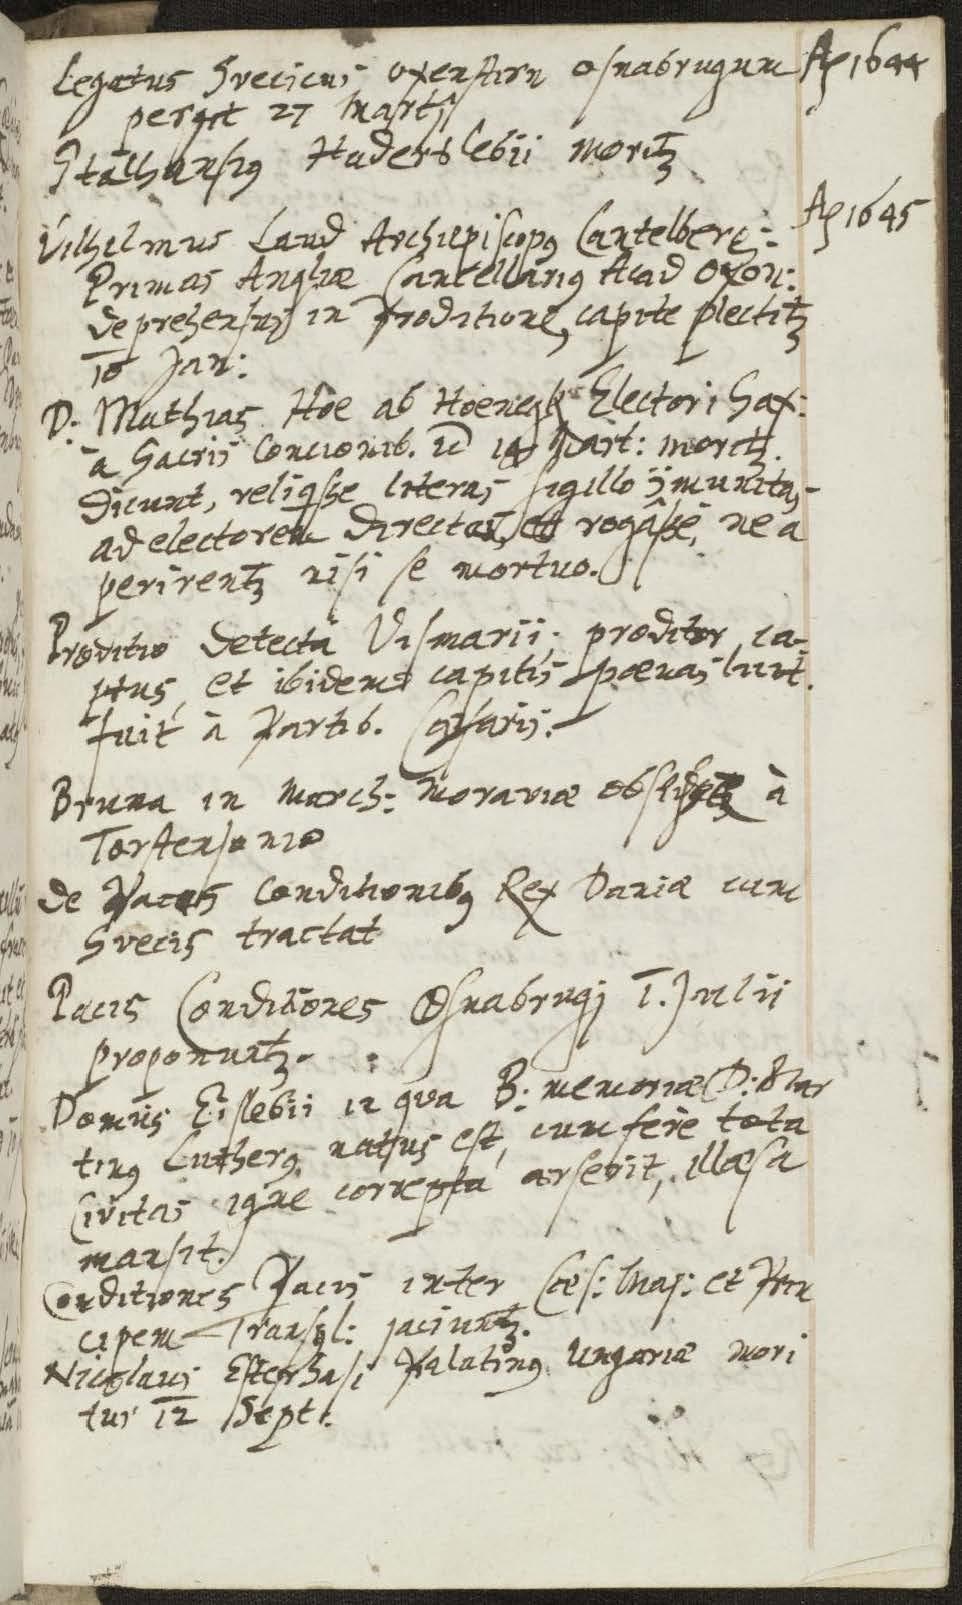 Legatus Svecicus Oxenstirn Osnabrugum Aº 1644
pergit 27 Martij
Stalhansius Haderslebii moritur
Vilhelmus Laud Archiepiscopus Cantelberg: Aº 1645
Primas Angliæ Cancellarius Acad Oxon:
deprehensus in Proditione, capite plectitur
10 Jan:
D: Mathias Hoe ab Hoenegk Electori Sax:
à Sacris Concionib. d 14 Mart: moritur.
dicunt, reliqsse literas sigillo immunitas
ad electorem directas, et rogâsse, ne a
perirentur nisi se mortuo.
Proditio detecta Vismarii, proditor ca-
ptus, et ibidem capitis pœnas luit.
fuit à Partib. Cæsaris.
Bruna in March: Moraviæ obsidetur à
Torstensonio
de Pacis Conditionibus Rex Daniæ cum
Svecis tractat
Pacis Conditiones Osnabrugj 1. Julii
proponuntur.
Domus Eislebii in qua B: memoriæ D: Mar
tinus Lutherus natus est, cum fere tota
Civitas igne correpta arserit, illæsa
mansit.
Conditiones Pacis inter Cæs: Maj: et Prin
cipem Transyl: jaciuntur.
Nicolaus Esterhasi Palatinus Ungariæ mori
tur 12 Sept: